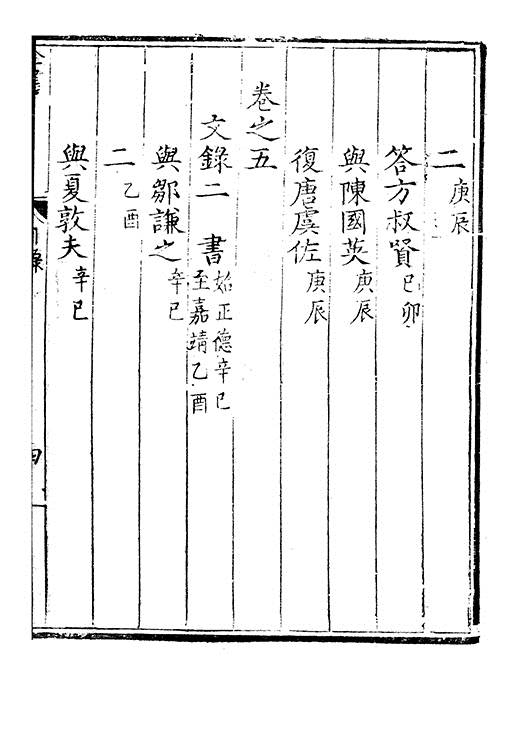 二 庚辰
答方叔賢 己卯
與陳國英 庚辰
復唐虞佐 庚辰
卷之五
文錄二 書 始正德辛巳
至嘉靖乙酉
與鄒謙之 辛巳
二 乙酉
與夏敦夫 辛巳
目錄
四